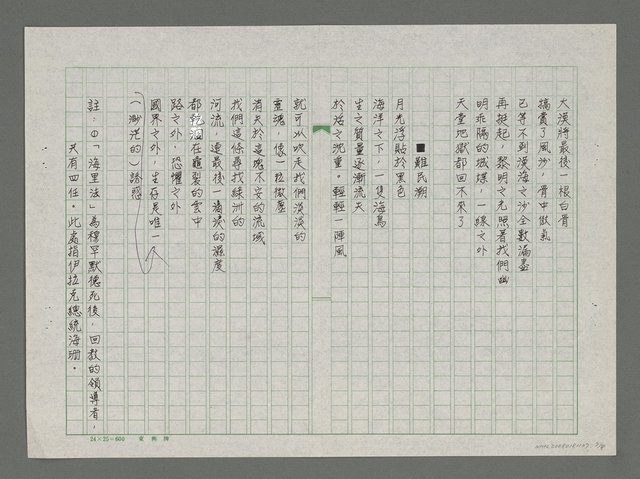 大漠將最後一根白骨
犒賞了風沙，骨中傲氣
已等不到漠海之沙全數漏盡
再挺起，黎明之光照著我們幽
明永隔的城堞，一線之外
天堂地獄都回不來了
■難民潮
月光浮貼於黑色
海洋之下，一隻海鳥
生之質量逐漸流失
於活之沈重。輕輕一陣風
就可以吹走我們淡淡的
靈魂，像一粒微塵
消失於這塊不安的流域
我們這條尋找綠洲的
河流，連最後一滴淚的濕度
都乾涸在龜裂的雲中
路之外，恐懼之外
國界之外，生存是唯一
（渺茫的）誘惑
註：①「海里法」為穆罕默德死後，回教的領導者，
共有四任。此處指伊拉克總統海珊。
24×25=600